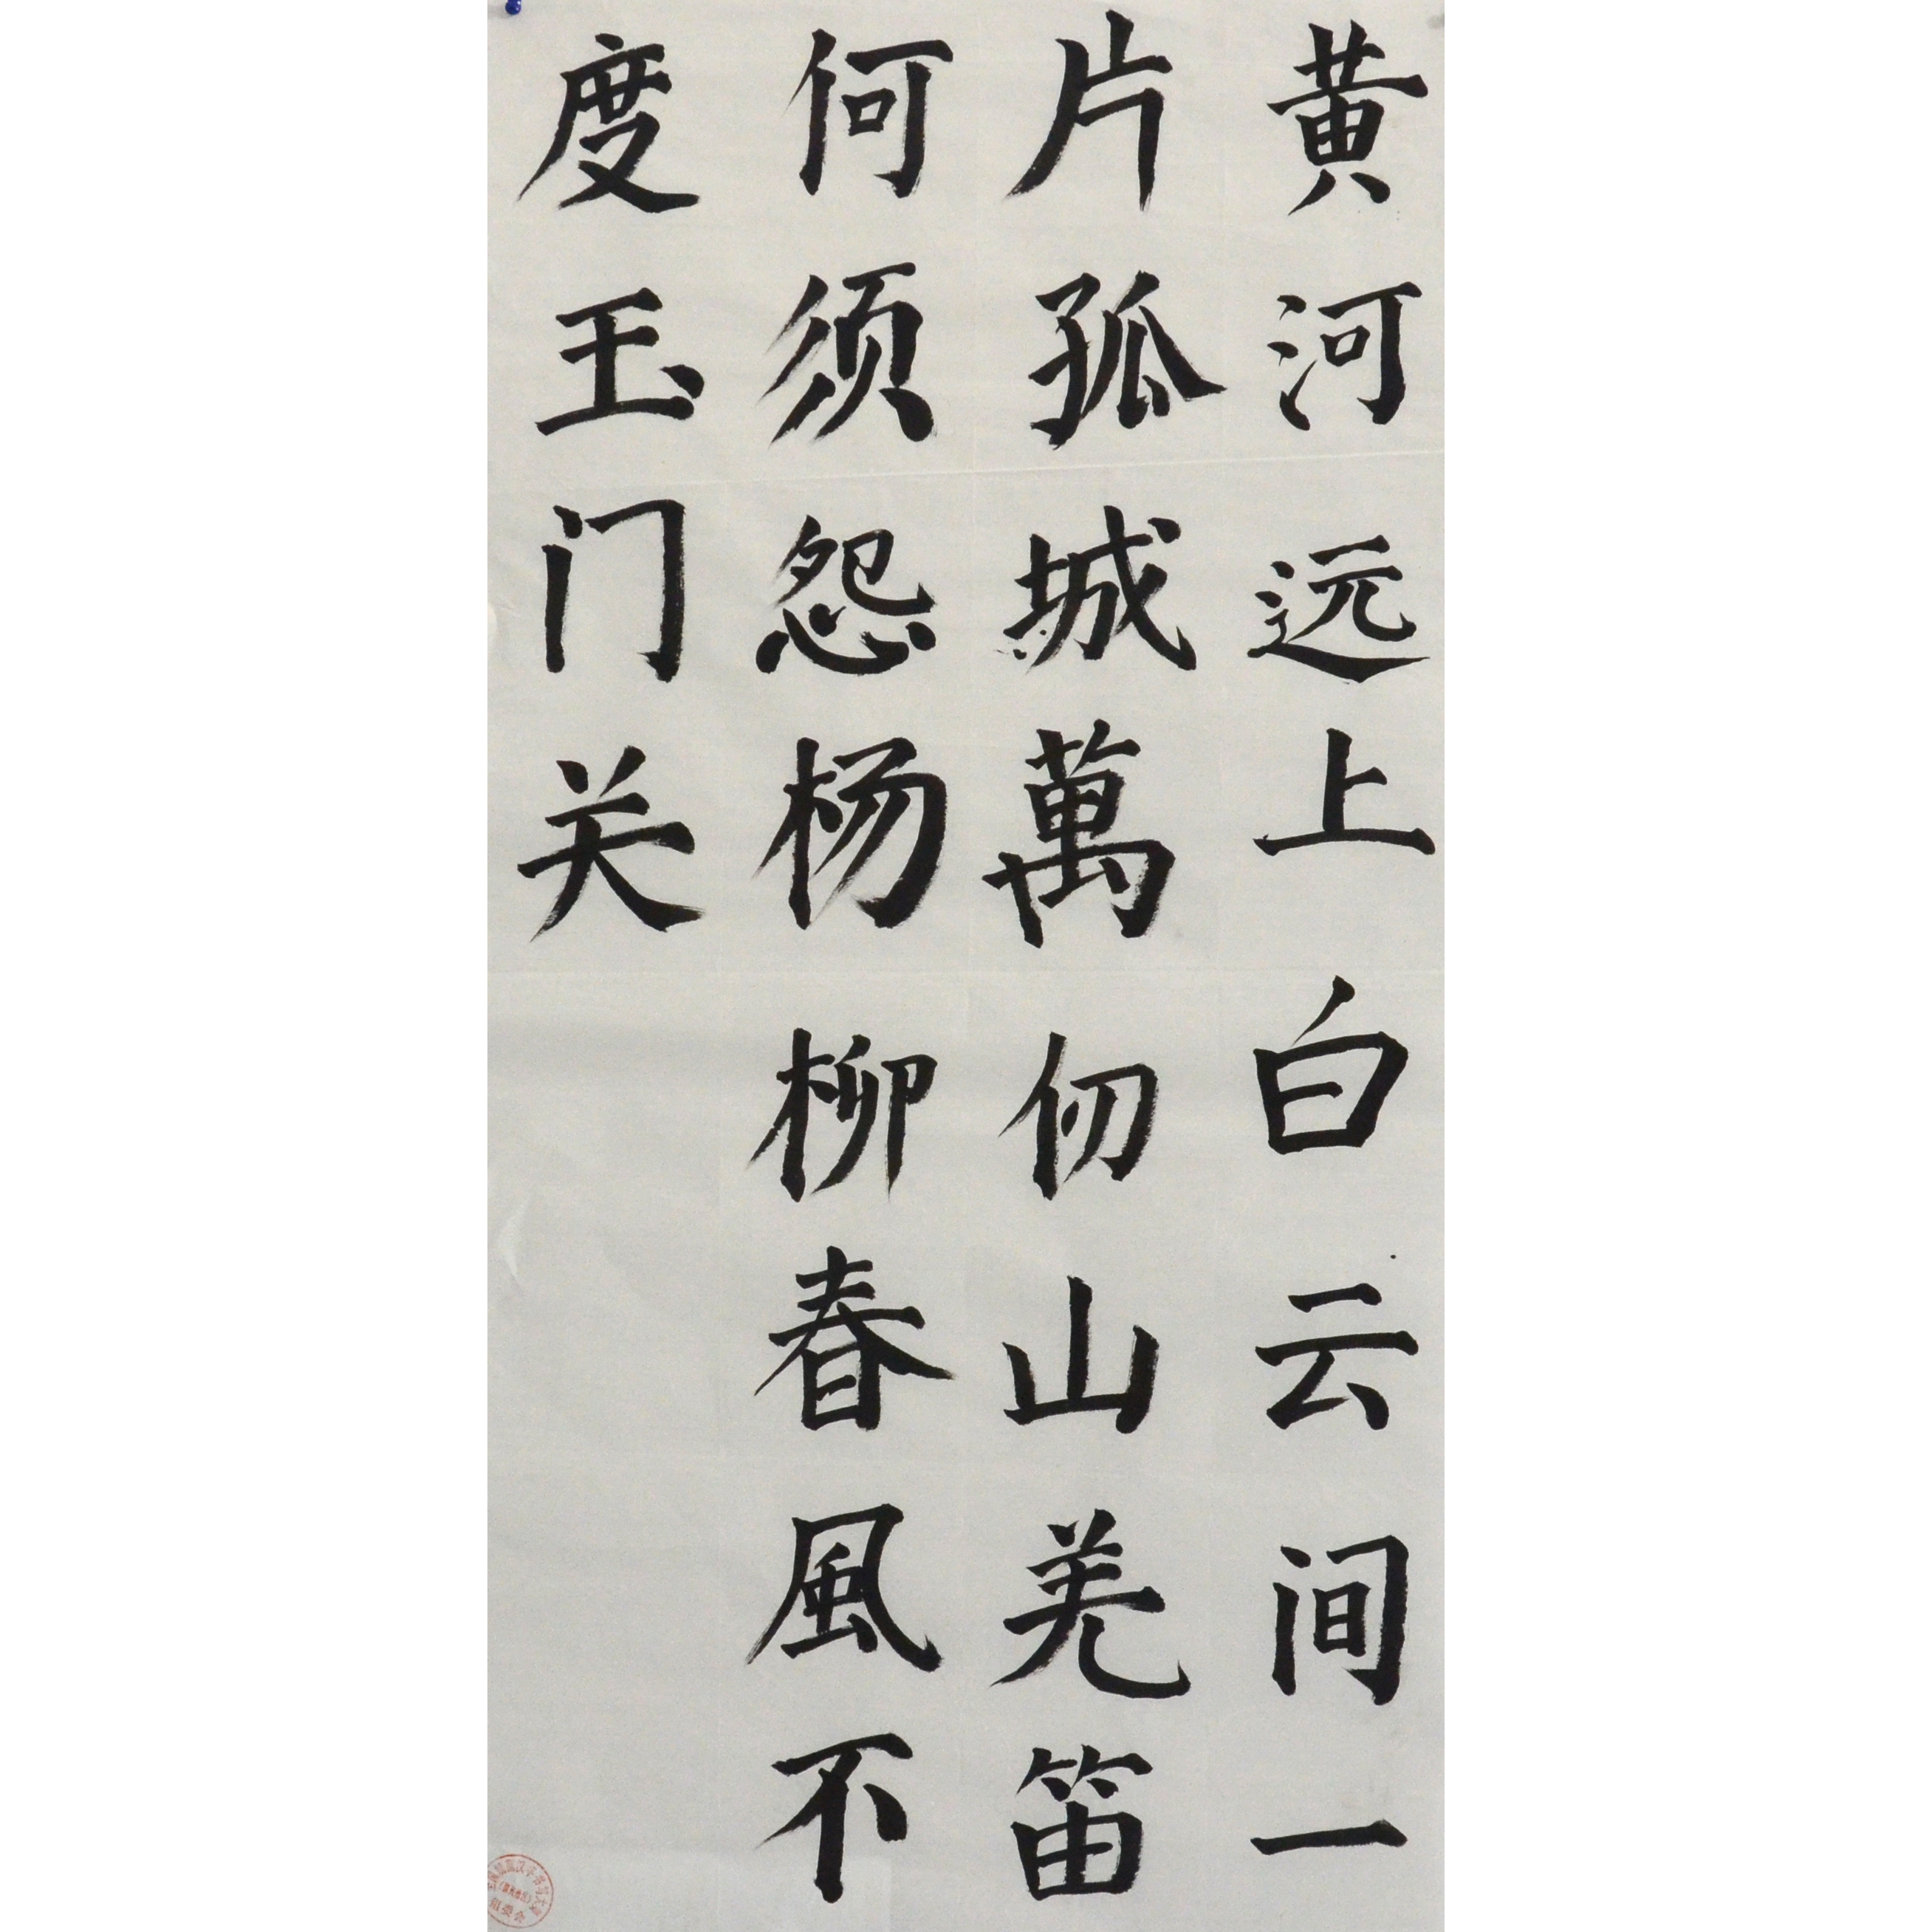 黄河远上白云间一
片孤城萬仞山羌笛
何须怨杨柳春風不
度玉门关